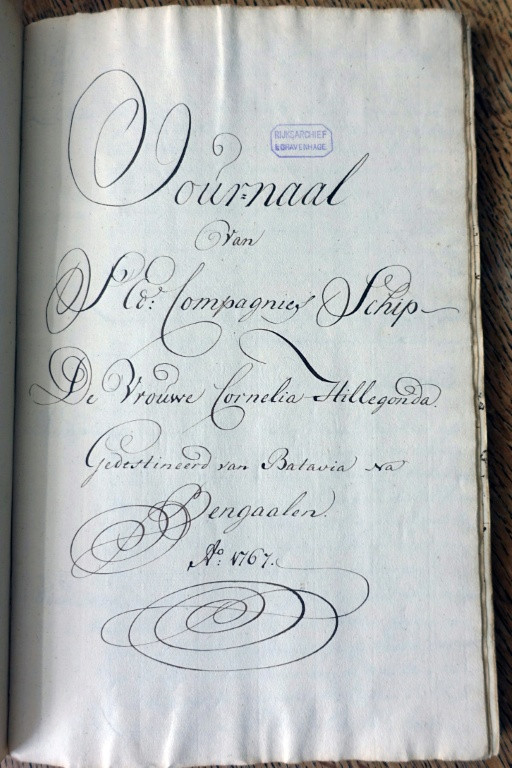 Journaal
RIJKSARCHIEF
's GRAVENHAGE
van
's Ed: Compagnies Schip
De Vrouwe Cornelia Hillegonda.
Gedestineerd van Batavia Na
Bengaalen.
Ao: 1767.